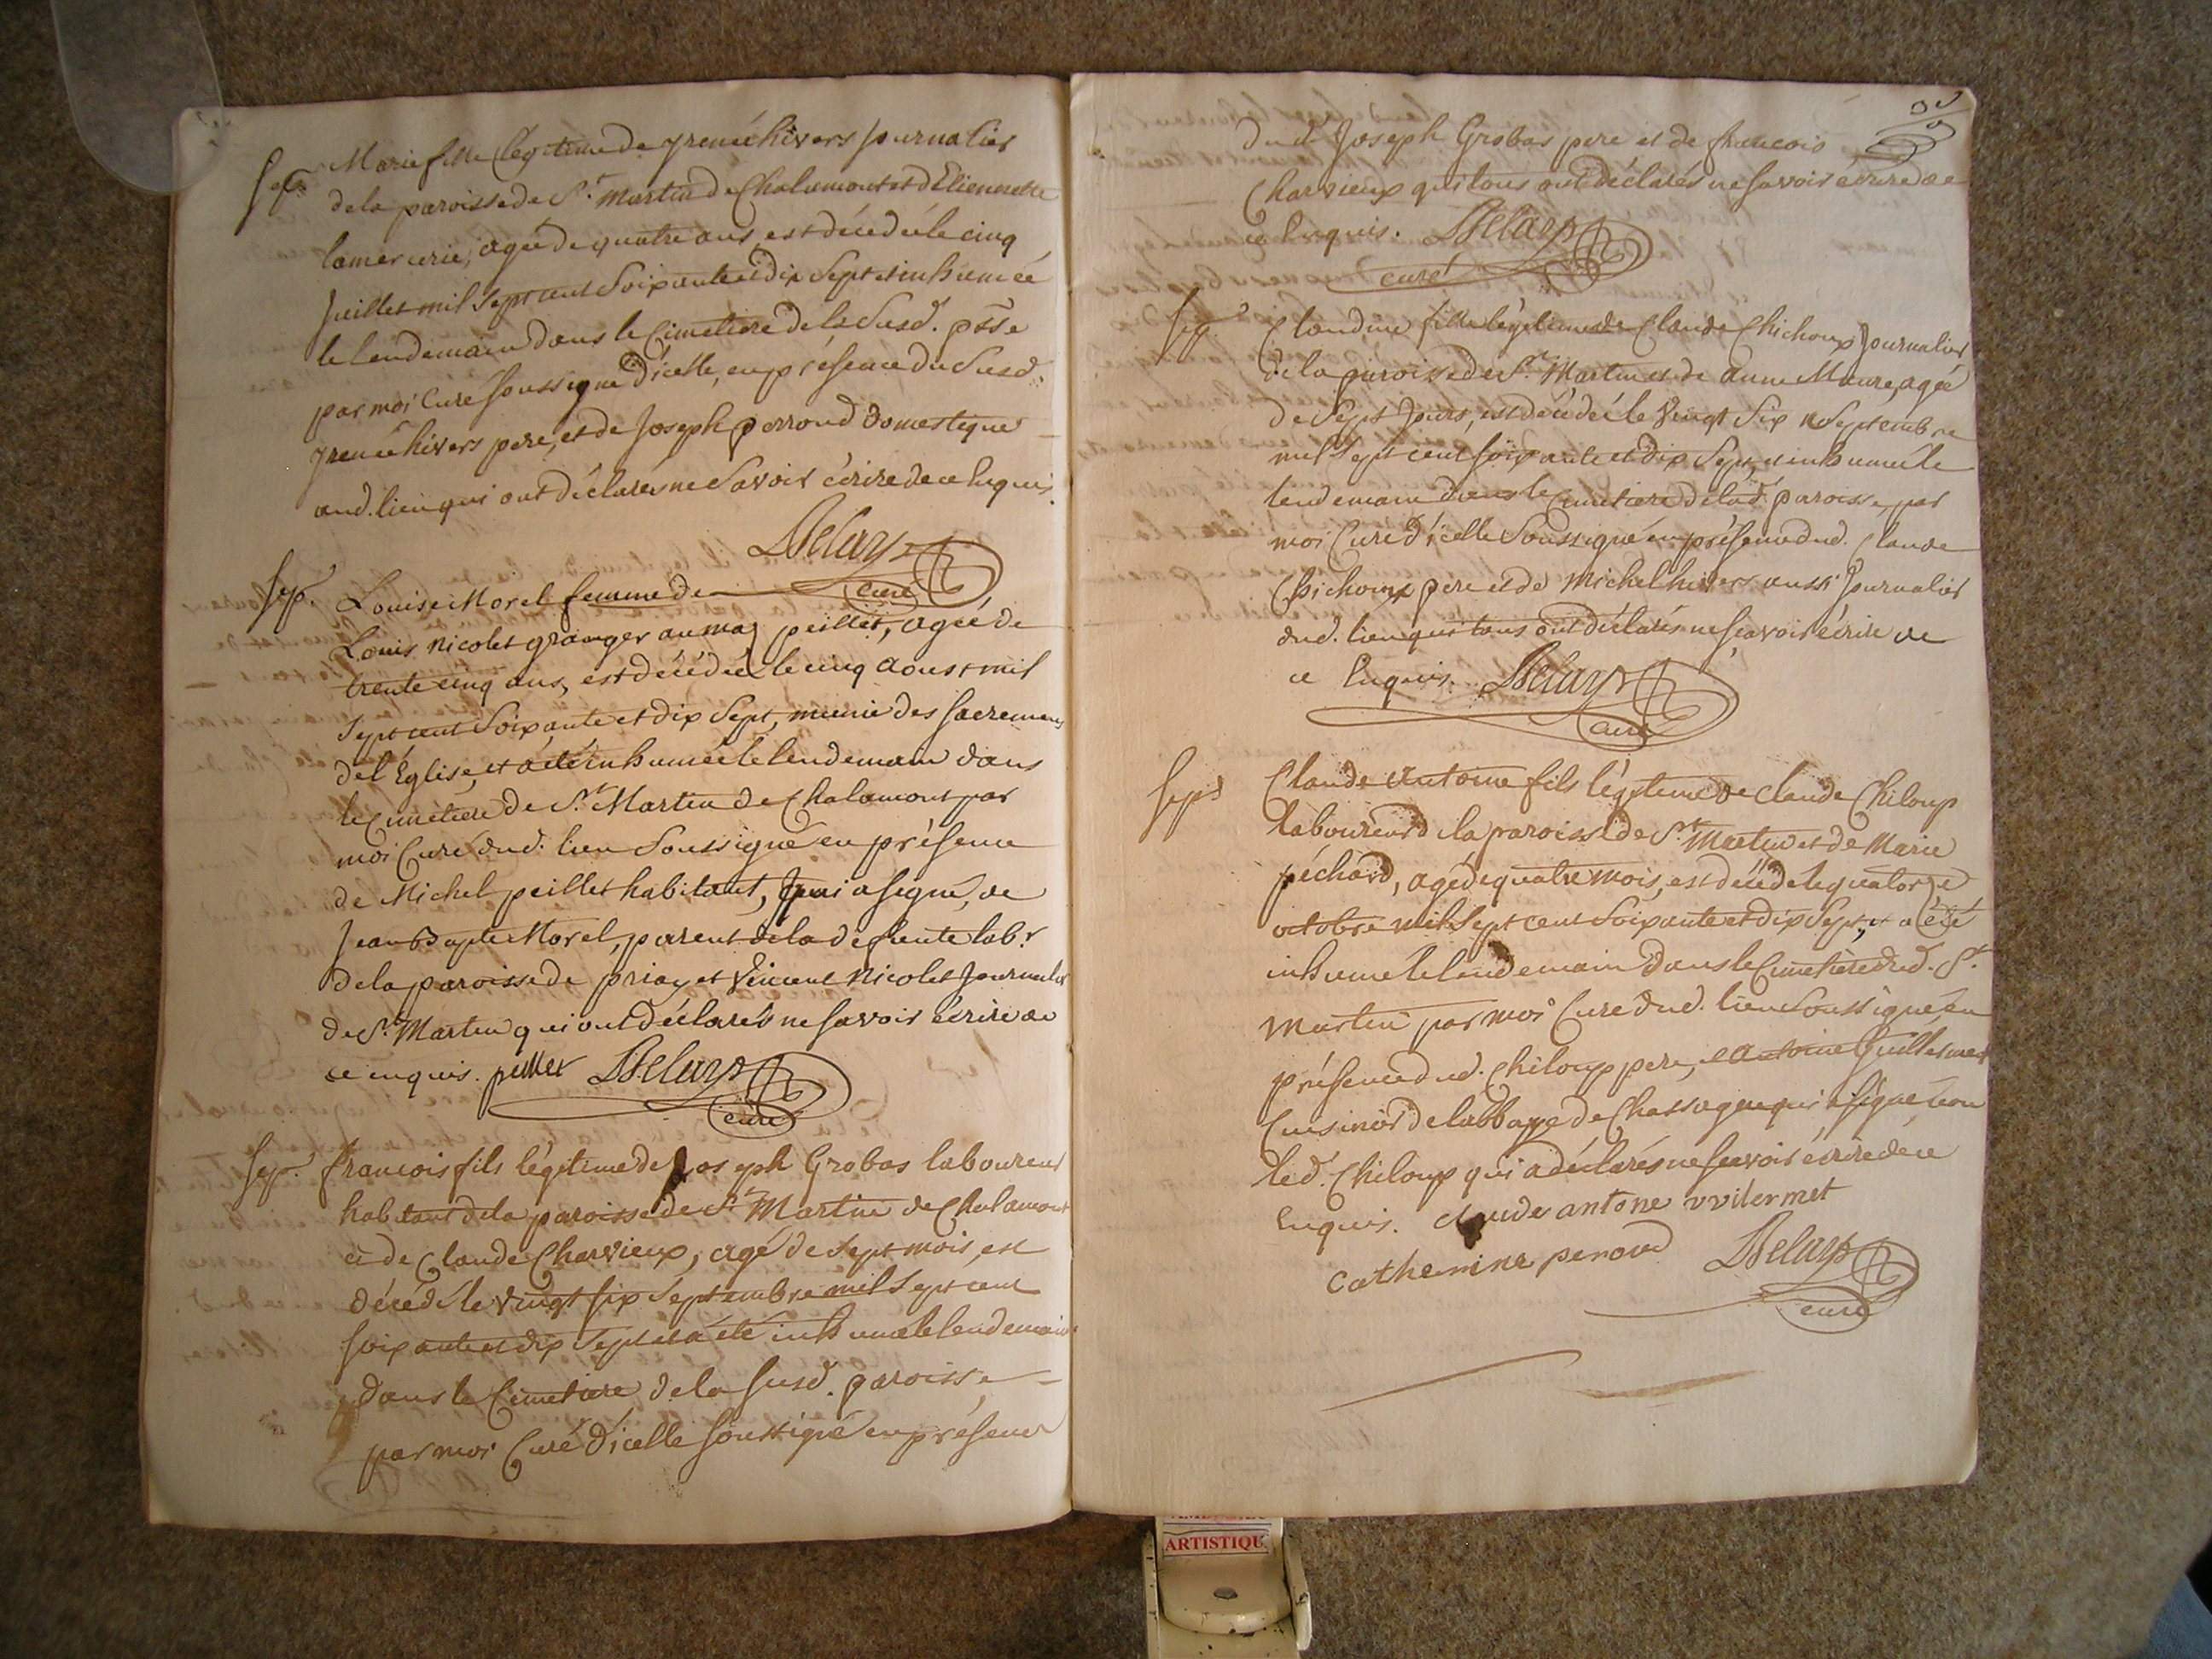 Sep.
Marie fille légitime de grenée hivers journalier
de la paroisse de St. Martin de Chalamont et d'Etiennette
lamercerie, agée de quatre ans, est décedée le cinq
Juillet mil sept cent Soixante et dix Sept et inhumée
le lendemain dans le Cimetiere de la Susd. psse
par moi Curé soussigné d'icelle, en présence du Susd.
grenée hivers pere, et de Joseph perroud Domestique
aud. lieu qui ont déclarés ne Savoir écrire de ce Enquis.
Delays
curé
Sep.
Louise Morel femme de
Louis Nicolet granger au mas peillet, agée de
trente cinq ans, est décédée le cinq aoust mil
Sept cent Soixante et dix Sept, munie des Sacremens
de l'Eglise, et a été inhumée le lendemain dans
le Cimetiere de St. Martin de Chalamont par
moi Curé dud. lieu Soussigné en présence
de Michel peillet habitant, qui a signé, de
Jean Baptiste Morel, parent de la défunte lab.r
de la paroisse de priay et Vincent Nicolet Journalier
de St. Martin qui ont déclarés ne savoir écrire de
ce enquis. peillet Delays
curé
Sep.
francois fils légitime de Joseph Grobas laboureur
habitant de la paroisse de St Martin de Chalamont
et de Claude Charvieux, agé de Sept mois, est
décédé le vingt six Septembre mil Sept cent
soixante et dix Sept et a été inhumé le lendemain
dans le Cimetiere de la susd. paroisse
par moi Curé d'icelle soussigné en présence
dud. Joseph Grobas pere et de francois
Charvieux qui tous ont déclarés ne savoir écrire de
ce Enquis. Delays
curé
Sep.
Claudine fille légitime de Claude Chichoux Journalier
de la paroisse de St. Martin et de anne Maure, agée
de Sept Jours, est décédée le Vingt Six Septembre
mil Sept cent soixante et dix Sept, et inhumée le
lendemain dans le Cimetiere de lad. paroisse, par
moi Curé d'icelle Soussigné en présence dud. Claude
Chichoux pere et de Michel hivers aussi Journalier
dud. lieu qui tous ont déclarés ne scavoir écrire de
ce Enquis. Delays
curé
Sep.
Claude Antoine fils légitime de Claude Chiloup
laboureur de la paroisse de St. Martin et de Marie
péchard, agé de quatre mois, est décédé le quatorze
octobre mil Sept cent Soixante et dix Sept, et a été
inhumé le lendemain dans le Cimetiere dud. St.
Martin par moi Curé dud. lieu Soussigné en
présence dud. Chiloup pere, et antoine Guillermet
Cuisinier de l'abbaye de Chassagne qui a signé non
led. Chiloup qui a déclarés ne scavoir écrire de ce
Enquis. claude antone vvilermet
catherine peroud Delays
curé
ARTISTIQU